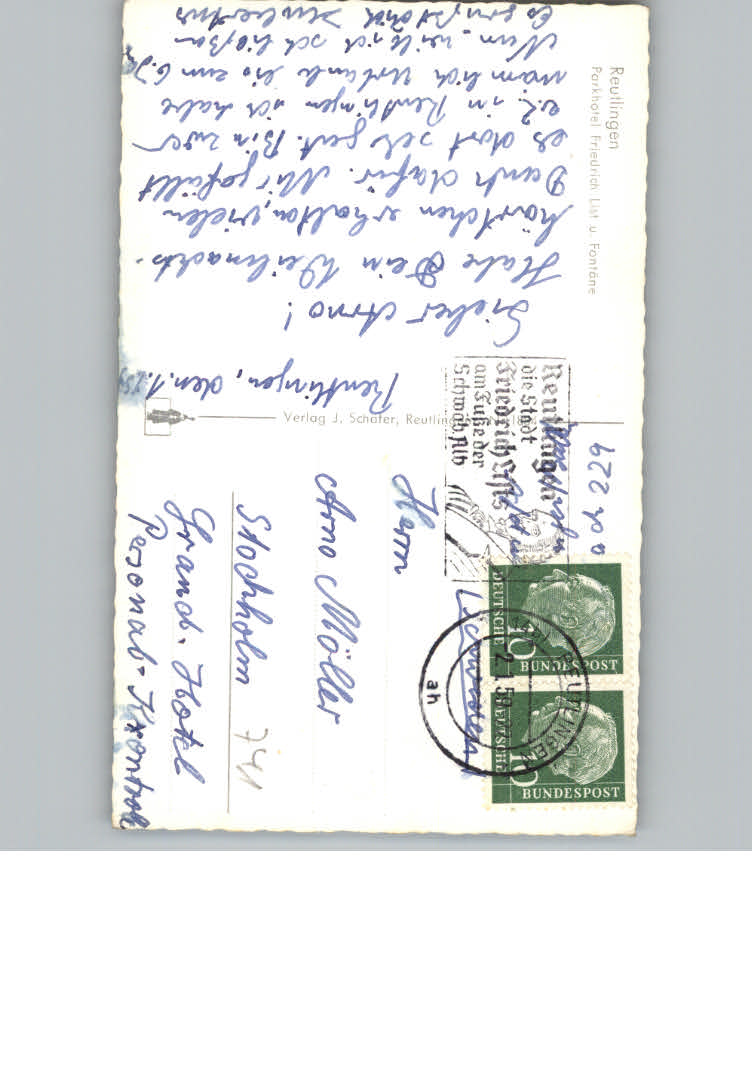 Reutlingen
Parkhotel Friedrich List u. Fontäne
Reutlingen, den 1.1.59
Lieber Arno!
Habe Dein Weihnachts-
kärtchen erhalten, vielen
Dank dafür. Mir gefällt
es dort sehr gut. Bin zur
z.Z. in Reutlingen ich habe
nämlich Urlaub bis zum 6.
Nun, will ich schließen
Es grüßt Dich
Verlag J. Schäfer, Reutlingen
Reutlingen
die Stadt
Friedrich Lists
am Fuße der
Schwäb. Alb
REUTLINGEN
2.1.59
ah
10
DEUTSCHE
BUNDESPOST
10
DEUTSCHE
BUNDESPOST
229
Schweden
Herrn
Arno Möller
Stockholm
741
Grand-Hotel
Personal-Kontroll